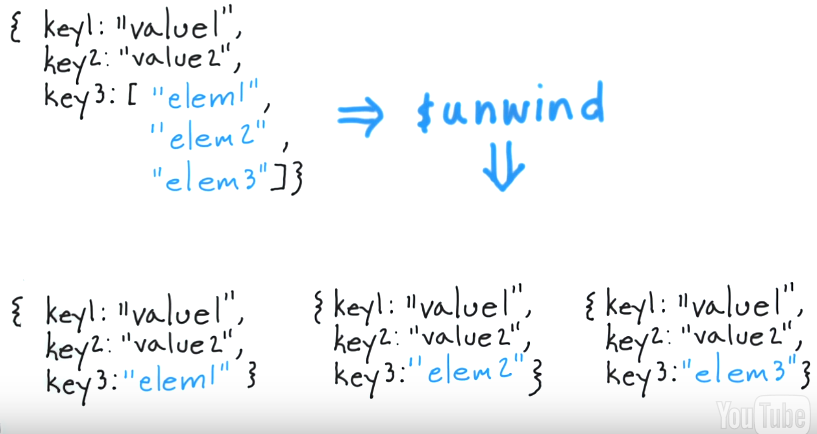 { key1: "value1",
key2: "value2",
key3: [ "elem1",
"elem2",
"elem3"]}
⇒ $unwind
⇓
{ key1: "value1",
key2: "value2",
key3:"elem1" }
{ key1: "value1",
key2: "value2",
key3:"elem2" }
{ key1: "value1",
key2: "value2",
key3:"elem3"}
YouTube